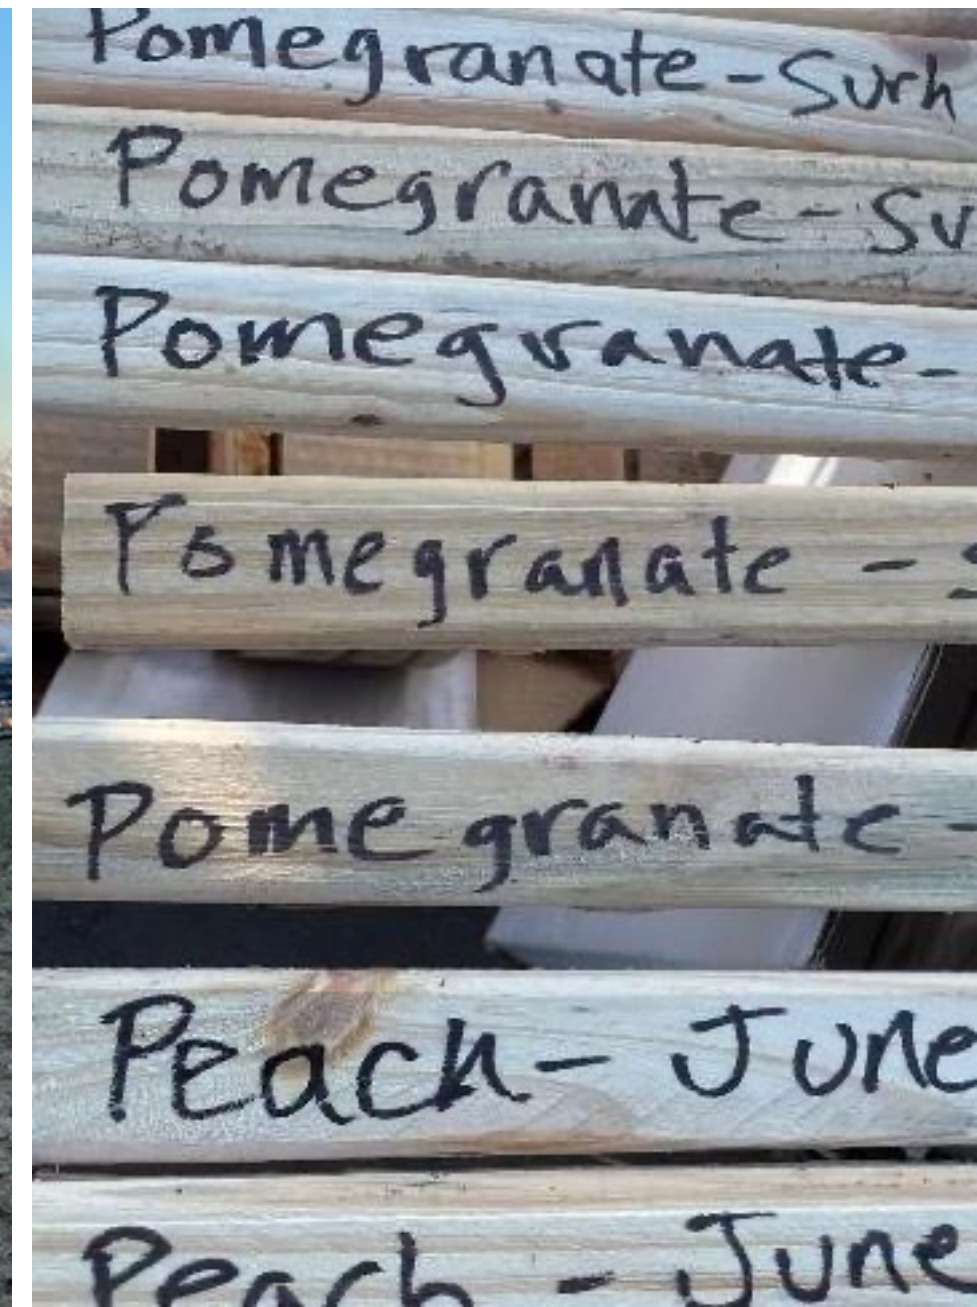 Pomegranate - Surh
Pomegranate - Su
Pomegranate -
Pomegranate - S
Pomegranate -
Peach - June
Peach - June